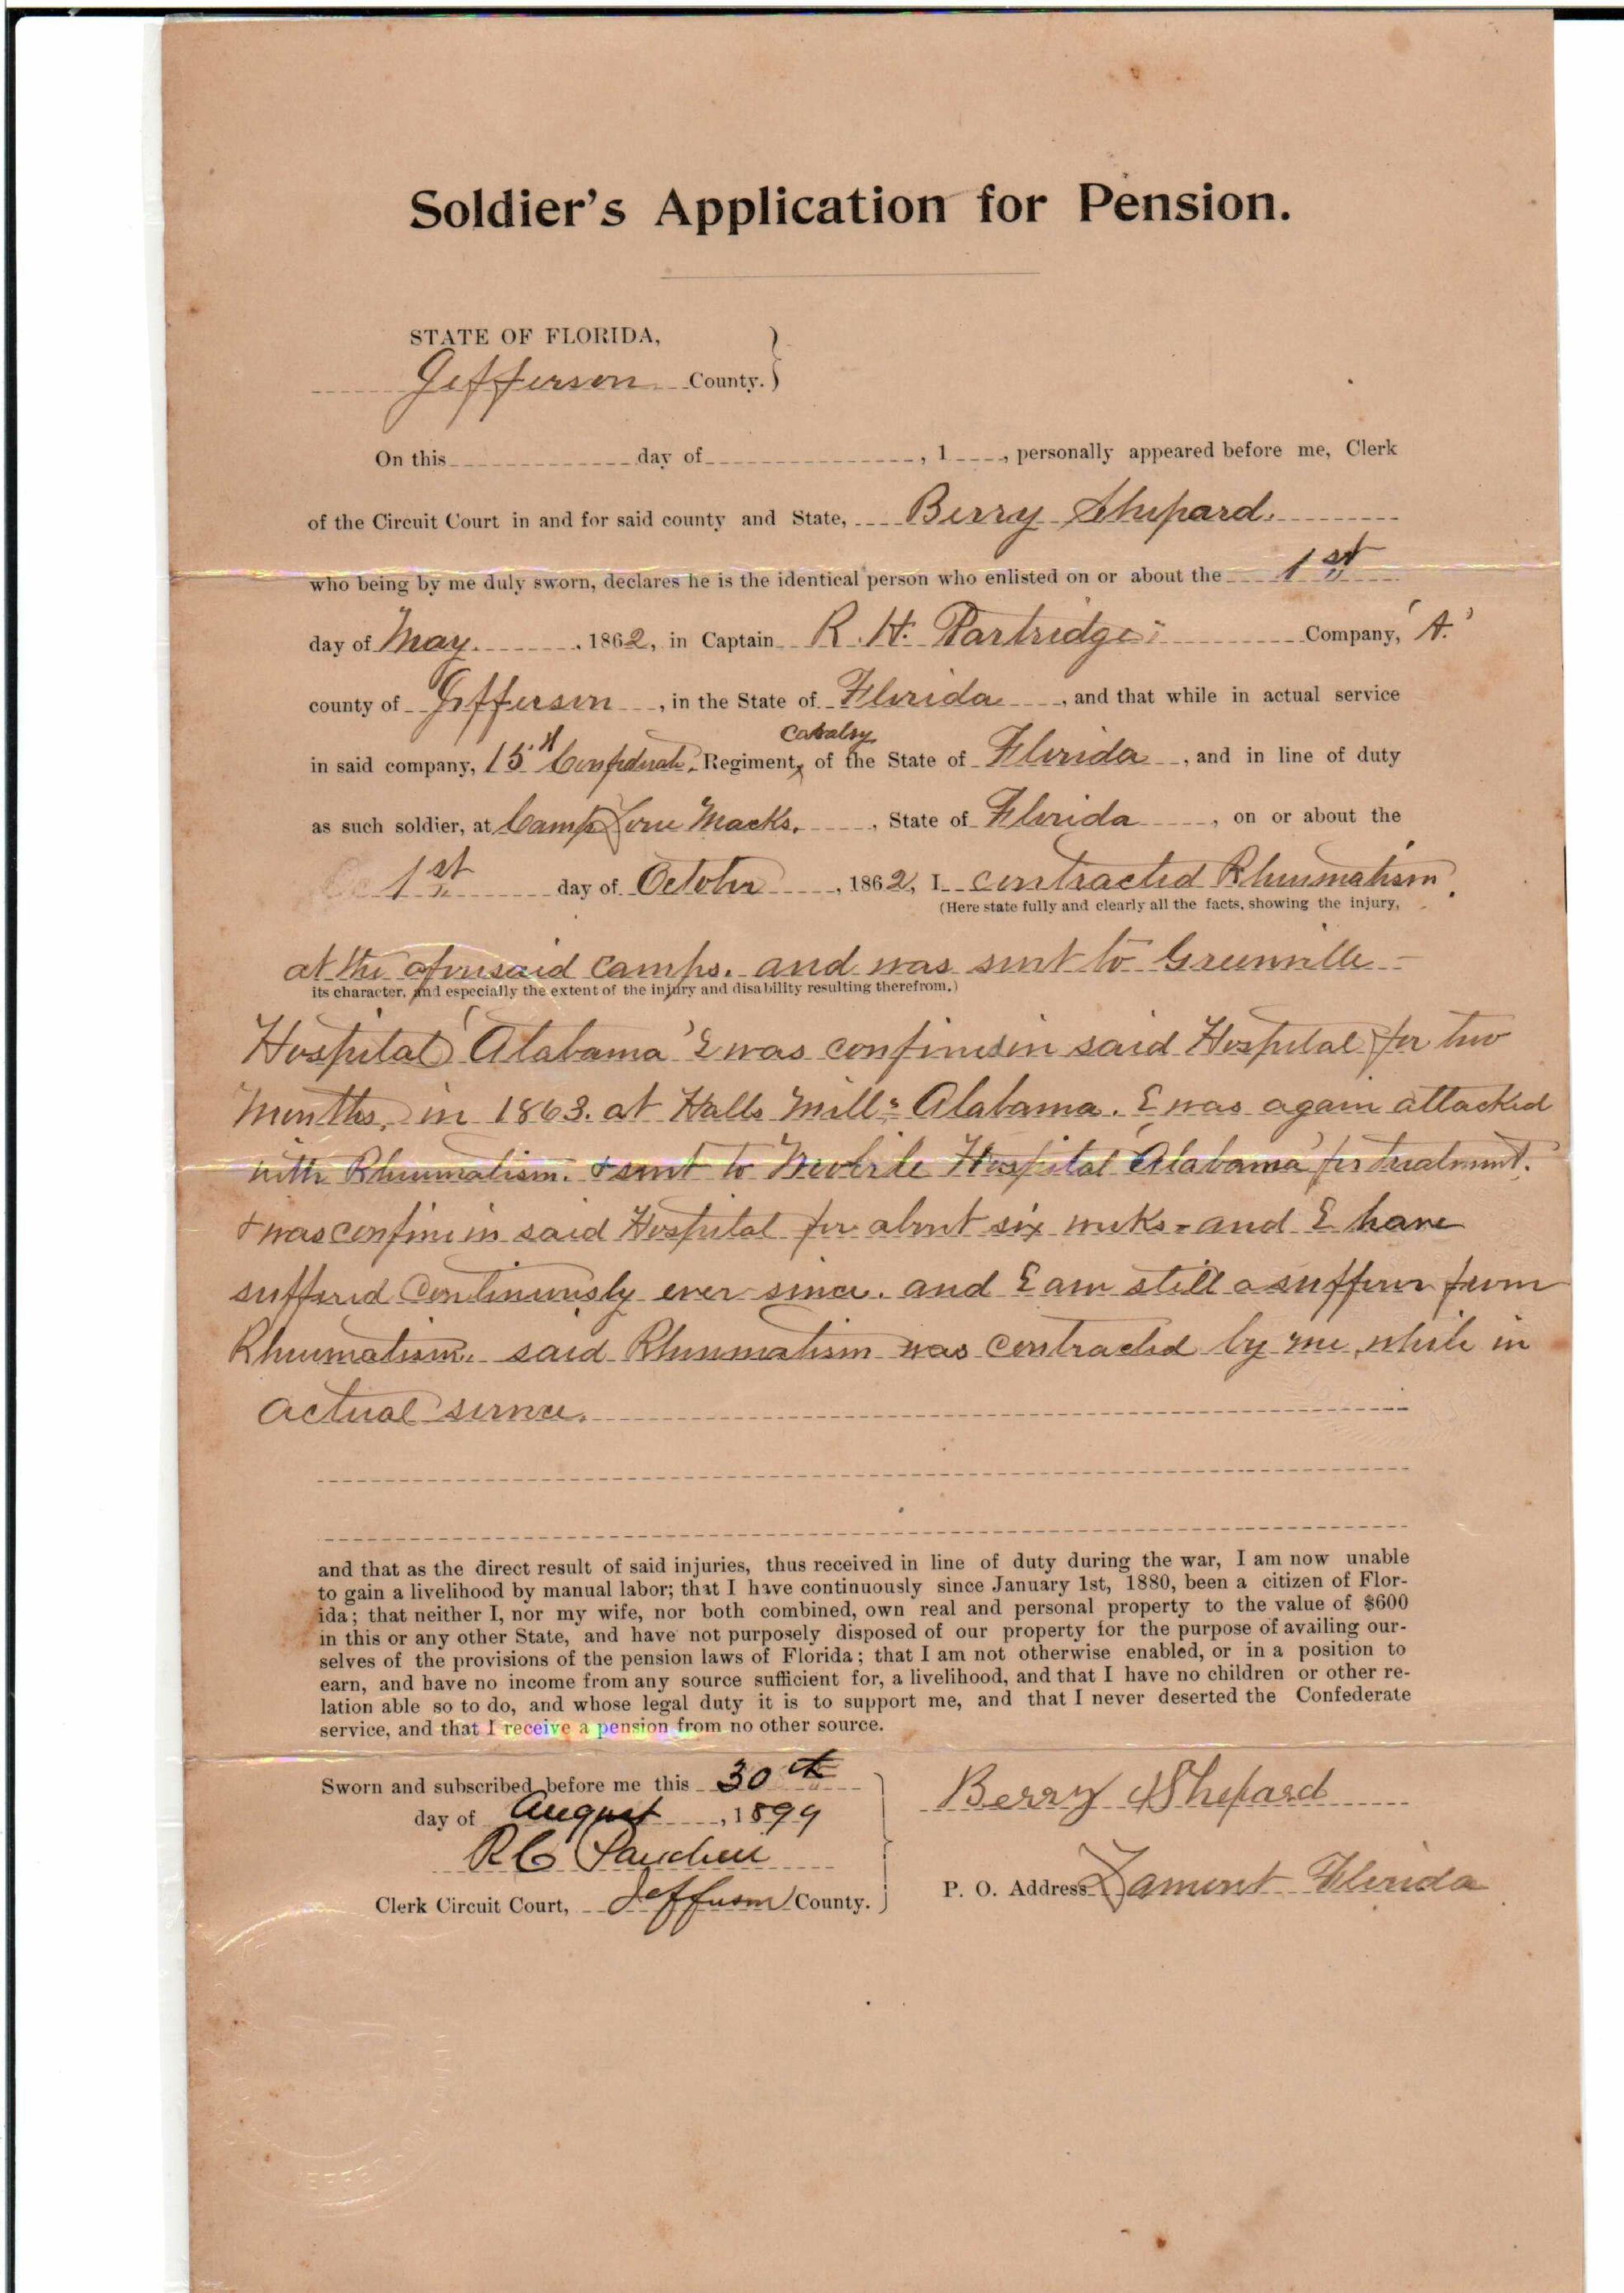 Soldier's Application for Pension.
STATE OF FLORIDA,
Jefferson County.
On this day of , 1 , personally appeared before me, Clerk
of the Circuit Court in and for said county and State, Berry Shepard.
who being by me duly sworn, declares he is the identical person who enlisted on or about the 1st
day of May. , 1862, in Captain R. H. Partridge Company, 'A.'
county of Jefferson , in the State of Florida , and that while in actual service
Cavalry
in said company, 15th Confederate. Regiment, of the State of Florida , and in line of duty
as such soldier, at Camp Macks. , State of Florida , on or about the
1st day of October , 1862, I contracted Rheumatism.
(Here state fully and clearly all the facts, showing the injury,
at the aforesaid camps. and was sent to Greenville
its character, and especially the extent of the injury and disability resulting therefrom.)
Hospital 'Alabama' I was confined in said Hospital for two
Months, in 1863. at Halls Mills Alabama. I was again attacked
with Rheumatism. & sent to Mobile Hospital 'Alabama' for treatment.
& was confine in said Hospital for about six weeks - and I have
suffered Continuously ever since. and I am still a sufferer from
Rheumatism. said Rheumatism was contracted by me, while in
actual service.
and that as the direct result of said injuries, thus received in line of duty during the war, I am now unable
to gain a livelihood by manual labor; that I have continuously since January 1st, 1880, been a citizen of Flor-
ida; that neither I, nor my wife, nor both combined, own real and personal property to the value of $600
in this or any other State, and have not purposely disposed of our property for the purpose of availing our-
selves of the provisions of the pension laws of Florida; that I am not otherwise enabled, or in a position to
earn, and have no income from any source sufficient for, a livelihood, and that I have no children or other re-
lation able so to do, and whose legal duty it is to support me, and that I never deserted the Confederate
service, and that I receive a pension from no other source.
Sworn and subscribed before me this 30th
day of August , 1899
R C
Clerk Circuit Court, Jefferson County.
Berry Shepard
P. O. Address Lamont Florida